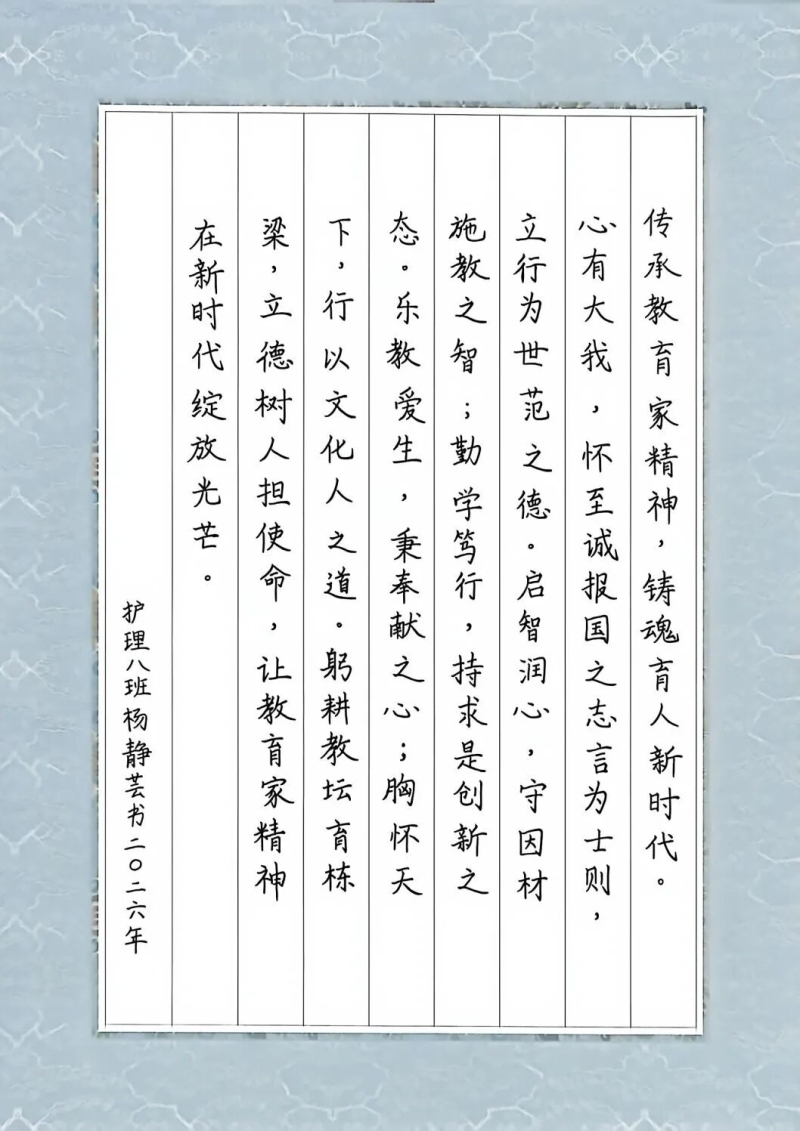 传承教育家精神，铸魂育人新时代。
心有大我，怀至诚报国之志言为士则，
立行为世范之德。启智润心，守因材
施教之智；勤学笃行，持求是创新之
态。乐教爱生，秉奉献之心；胸怀天
下，行以文化人之道。躬耕教坛育栋
梁，立德树人担使命，让教育家精神
在新时代绽放光芒。
护理八班杨静芸书二〇二六年